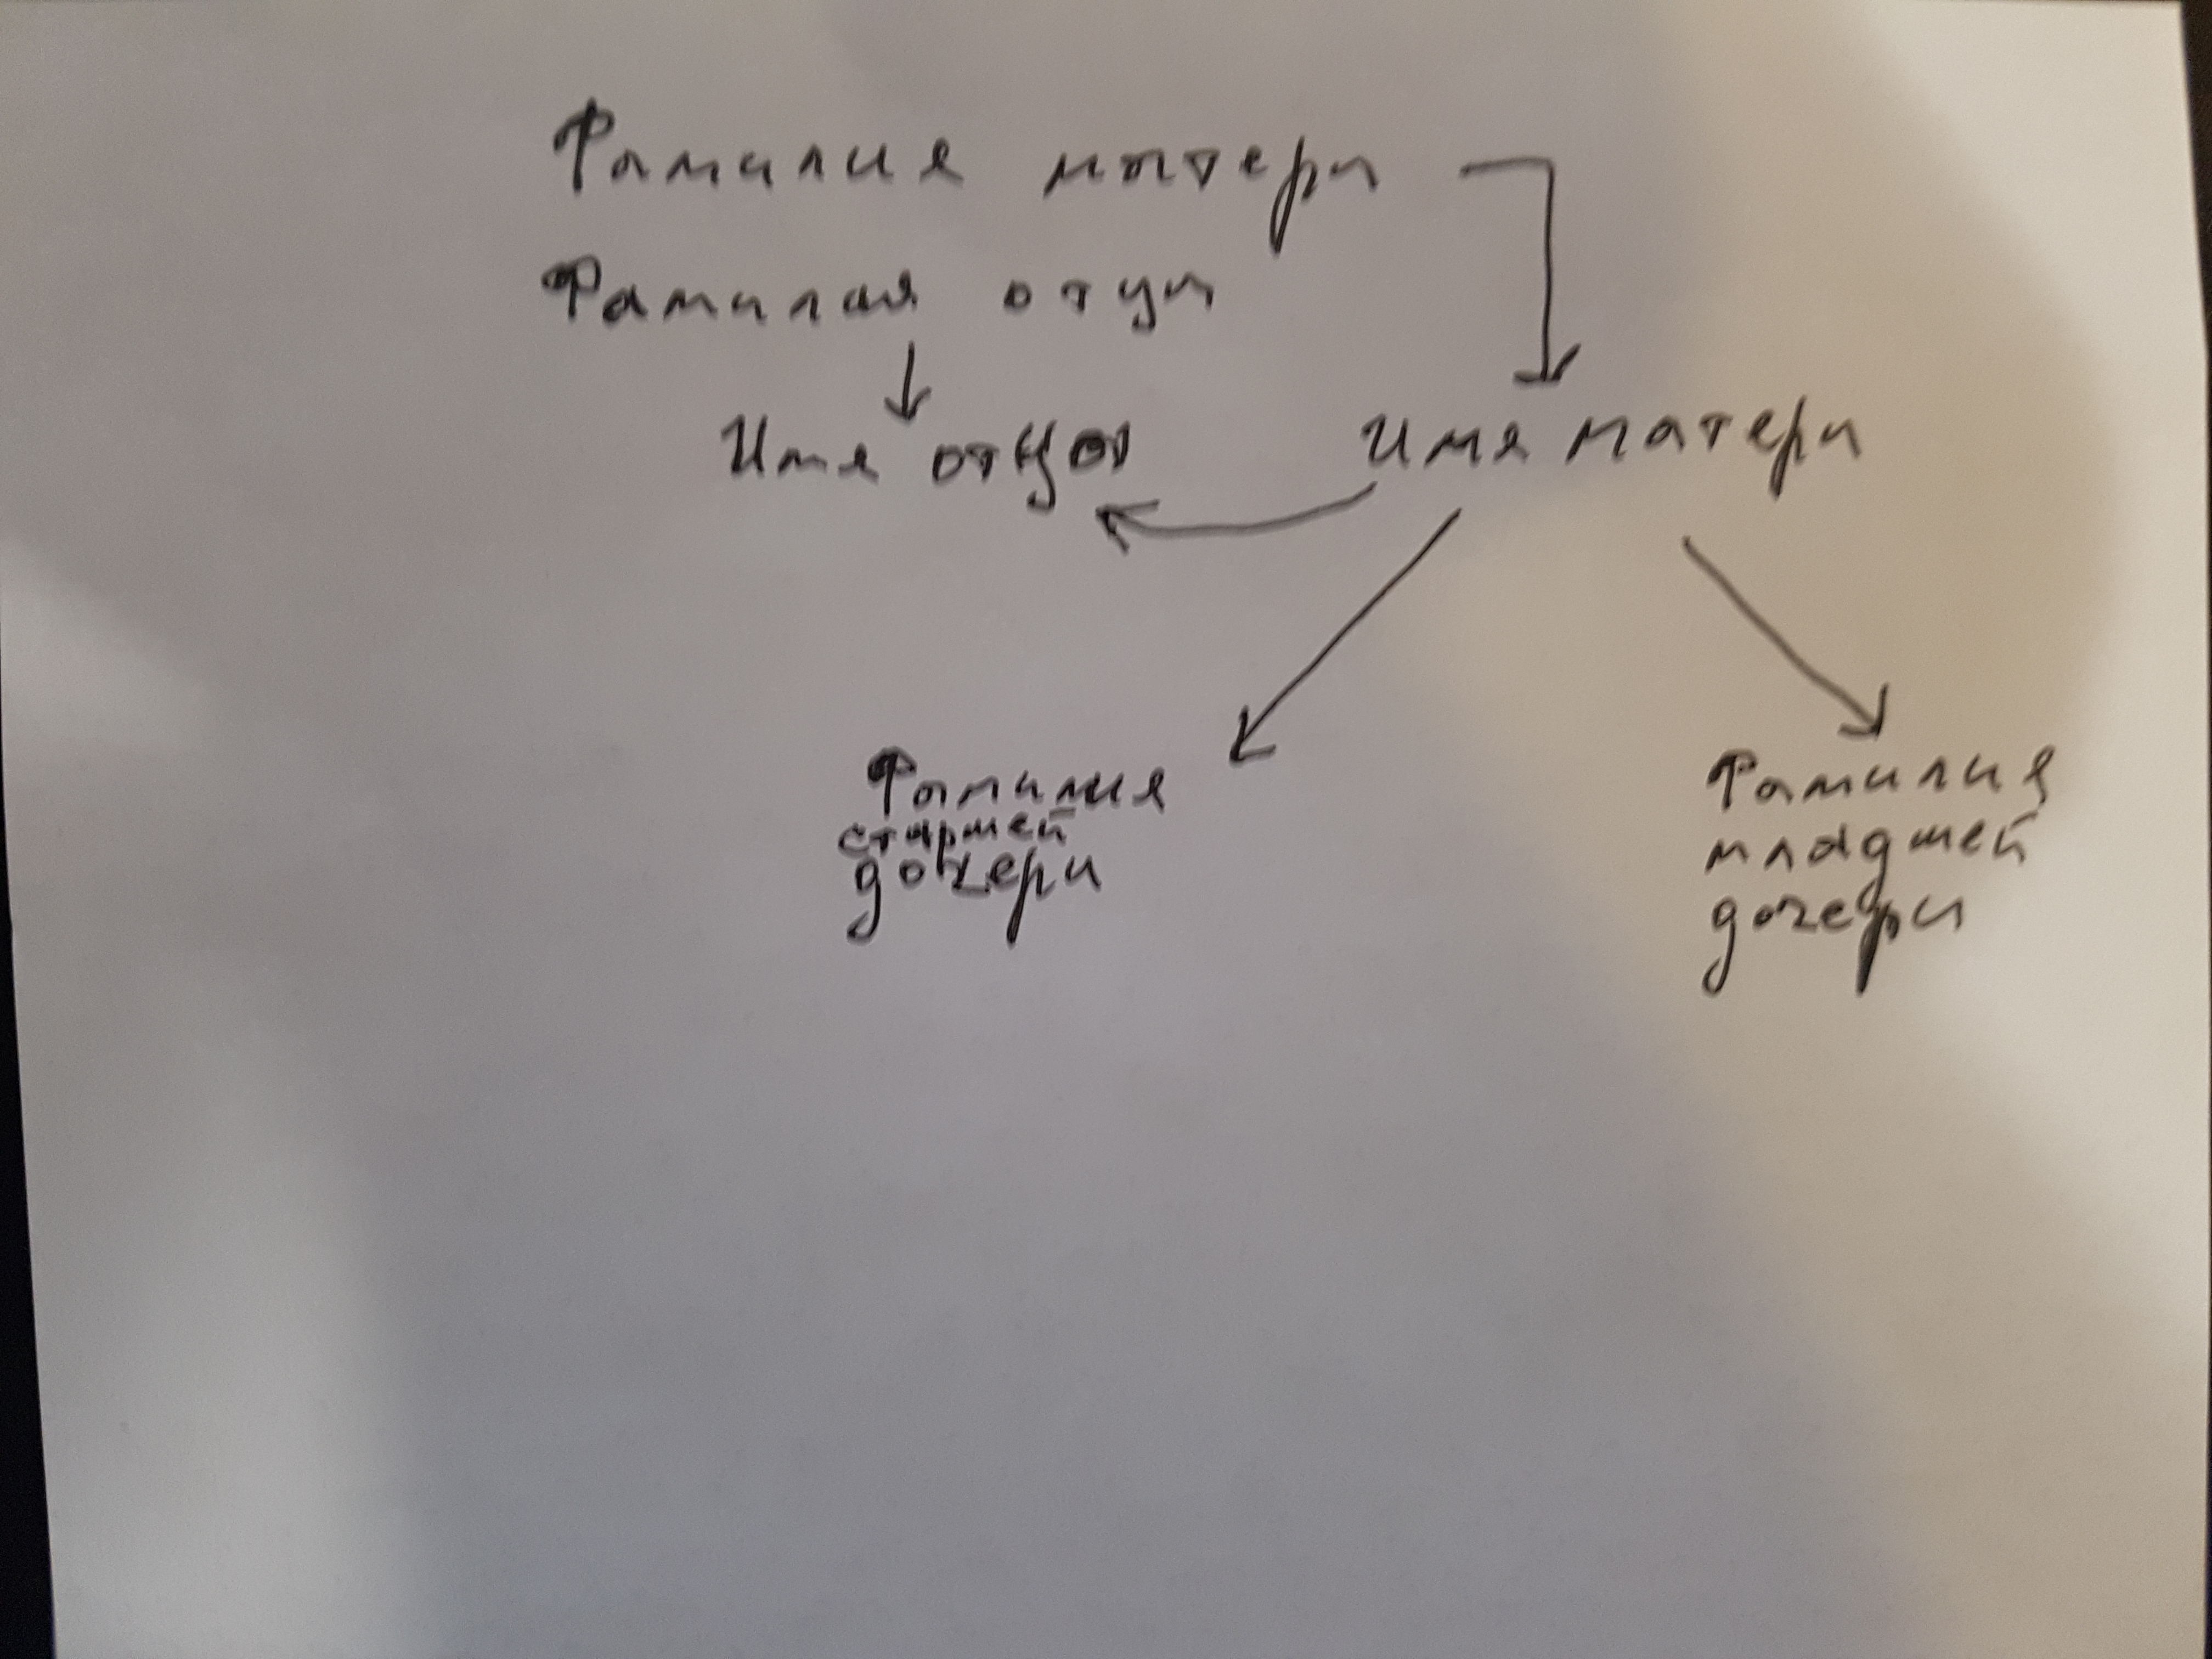 Фамилия матери
Фамилия отца
Имя отца
Имя матери
Фамилия
старшей
дочери
Фамилия
младшей
дочери